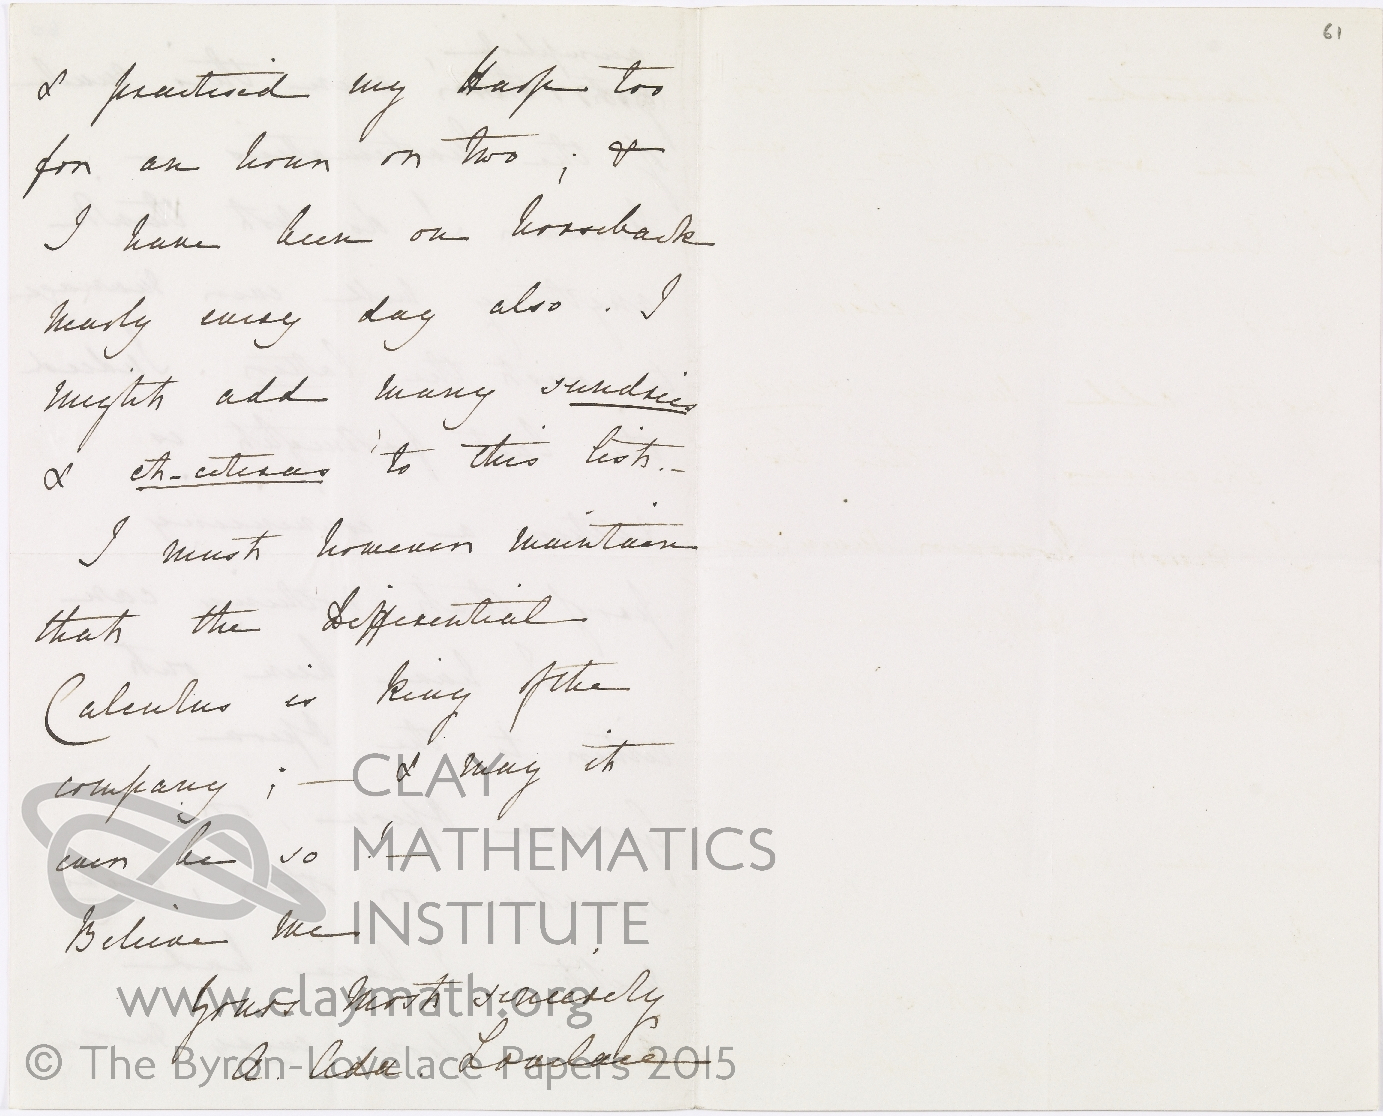 61
& practised my Harp too
for an hour or two ; &
I have been on horseback
nearly every day also. I
might add many sundries
& et-ceteras to this list.–
I must however maintain
that the Differential
Calculus is king of the
company ; — & may it
ever be so !—
Believe me
Yours most sincerely
A. Ada. Lovelace
CLAY
MATHEMATICS
INSTITUTE
www.claymath.org
© The Byron-Lovelace Papers 2015